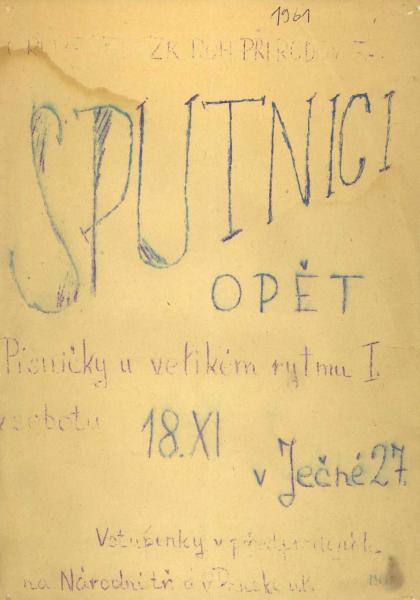 1961
ZK ROH PŘÍRODOV
SPUTNICI
OPĚT
Písničky u velikém rytmu I.
v sobotu
18.XI
v Ječné 27.
Vstupenky v předprodejích
na Národní tř a v